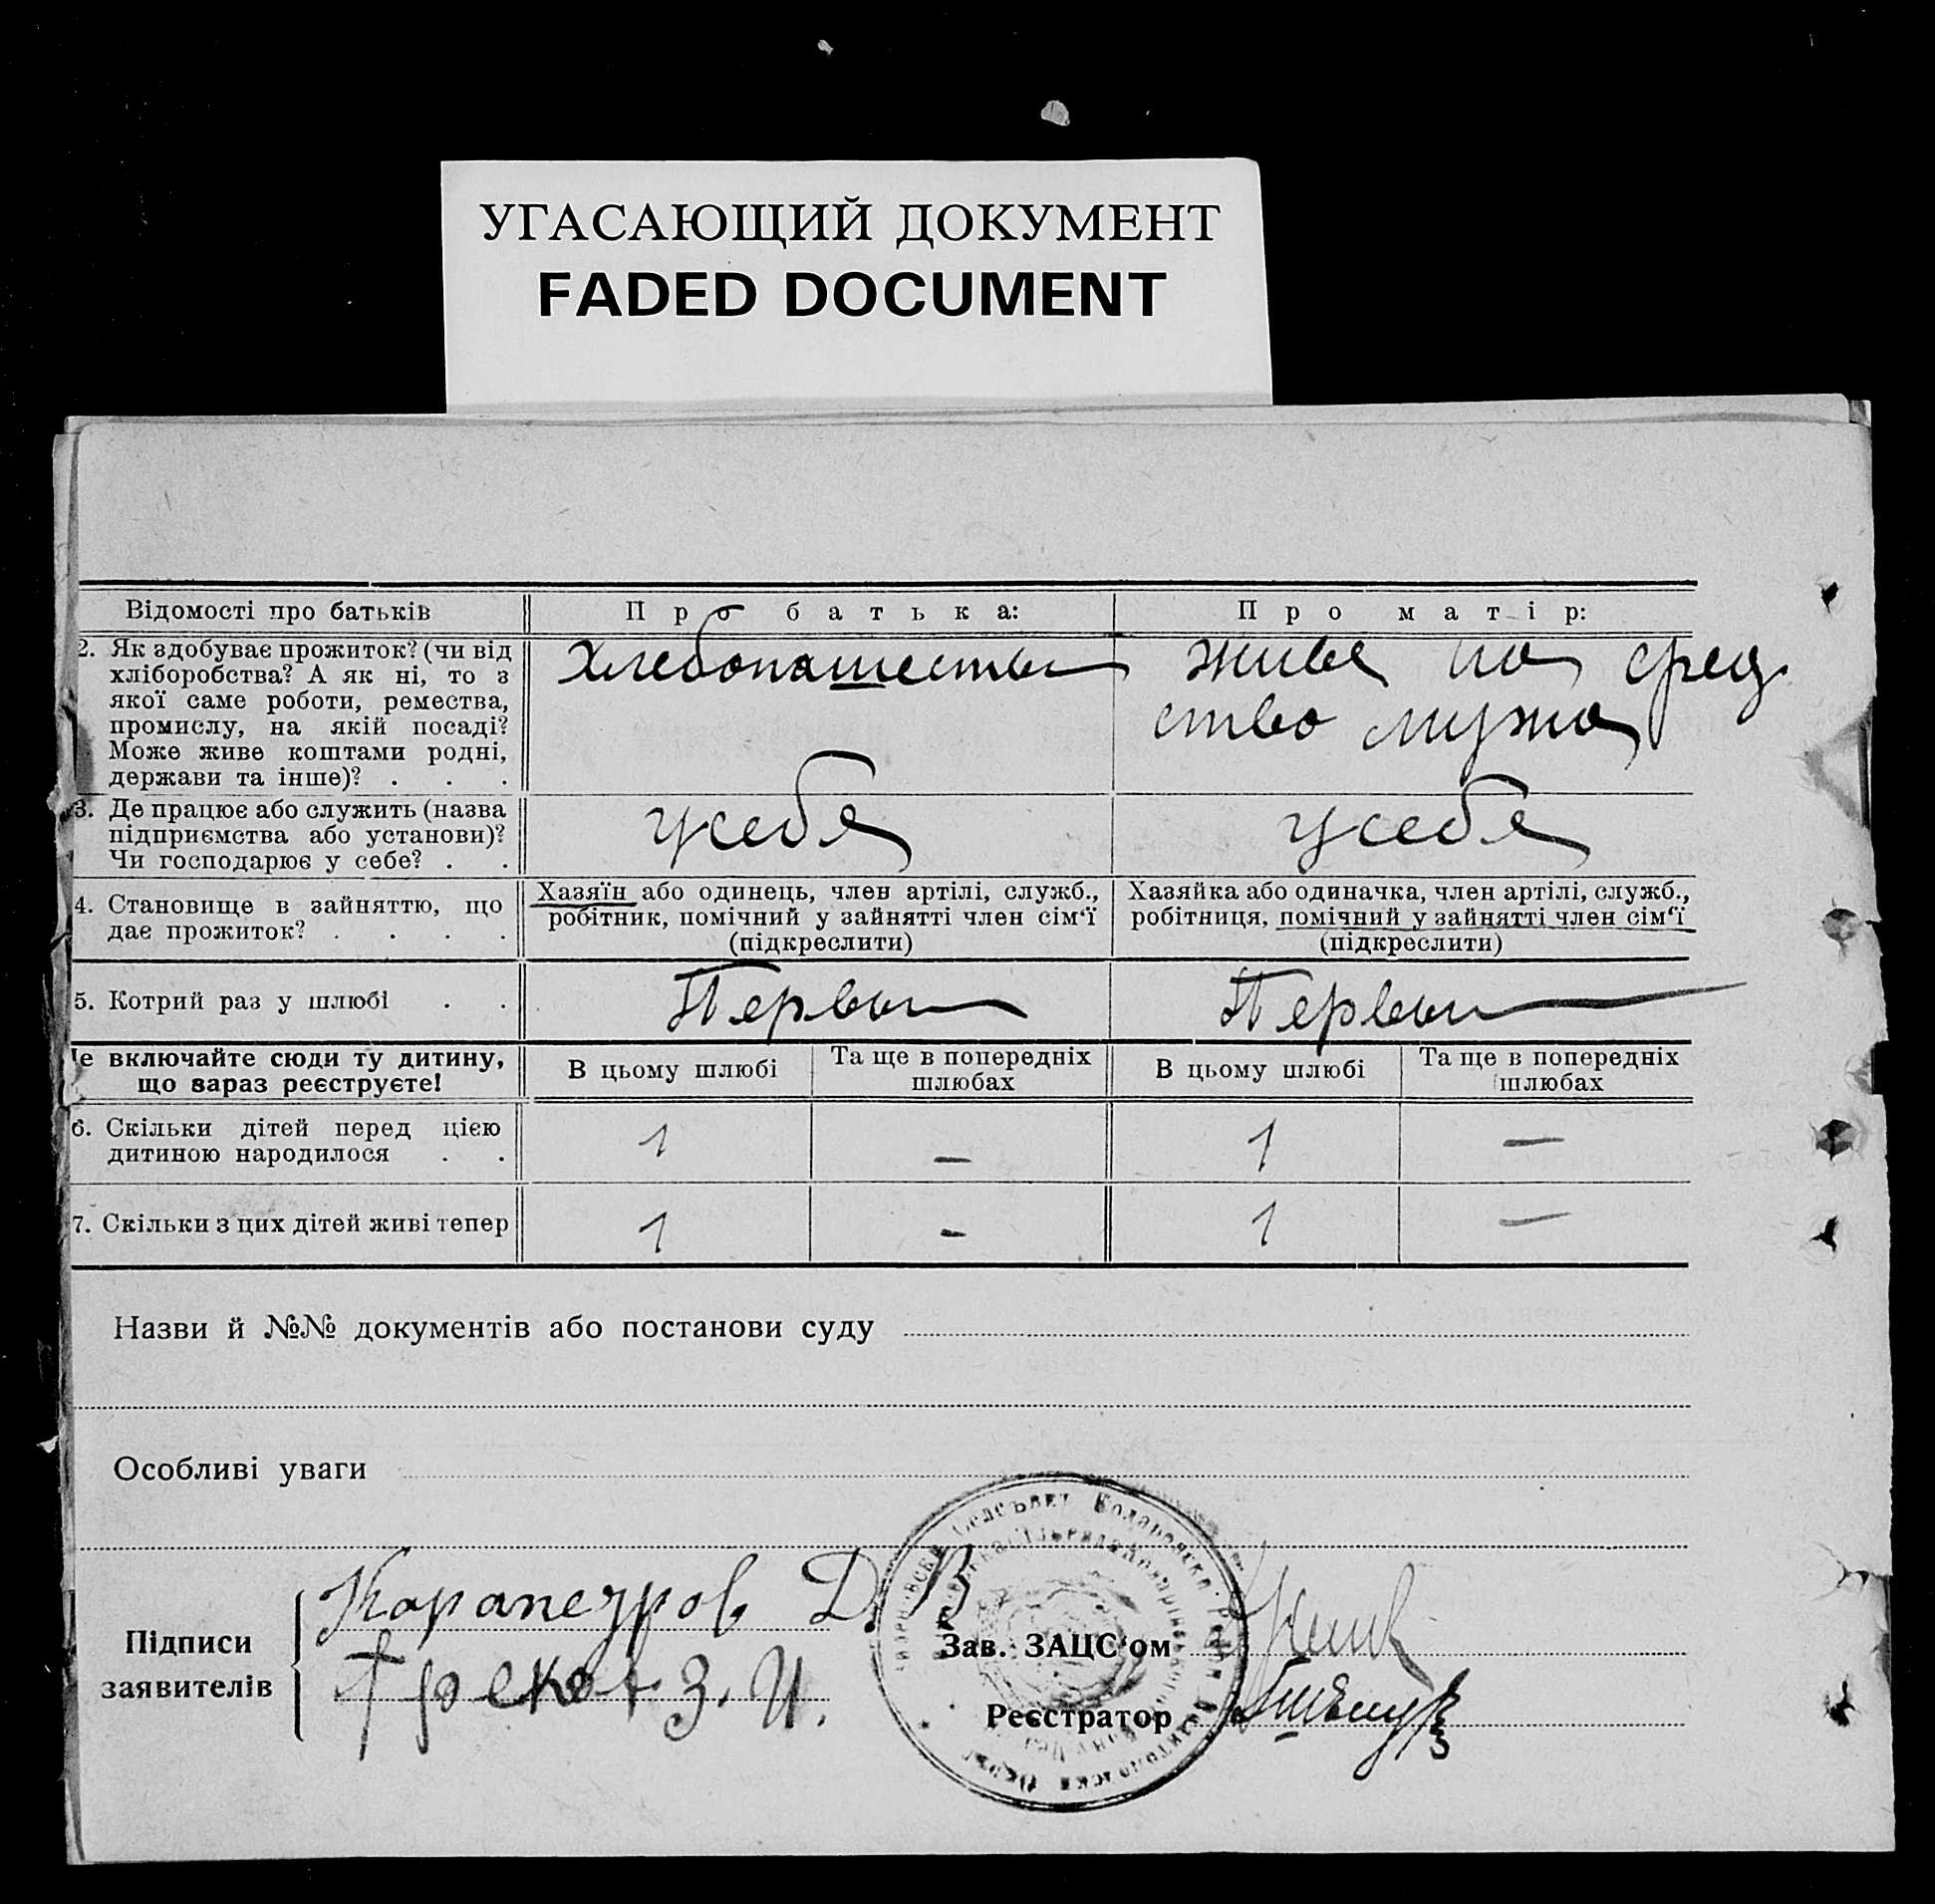 УГАСАЮЩИЙ ДОКУМЕНТ
FADED DOCUMENT
Відомості про батьків
Про батька:
Про матір:
2. Як здобуває прожиток? (чи від
хліборобства? А як ні, то з
якої саме роботи, ремества,
промислу, на якій посаді?
Може живе коштами родні,
держави та інше)? . . .
Хлебопашеством
живе на сред
ство мужа
3. Де працює або служить (назва
підприємства або установи)?
Чи господарює у себе? . .
у себя
у себя
4. Становище в зайняттю, що
дає прожиток? . . . .
Хазяїн або одинець, член артілі, служб.,
робітник, помічний у зайнятті член сім'ї
(підкреслити)
Хазяйка або одиначка, член артілі, служб.,
робітниця, помічний у зайнятті член сім'ї
(підкреслити)
5. Котрий раз у шлюбі . .
Первый
Первый
Не включайте сюди ту дитину,
що зараз реєструєте!
В цьому шлюбі
Та ще в попередніх
шлюбах
В цьому шлюбі
Та ще в попередніх
шлюбах
6. Скільки дітей перед цією
дитиною народилося . .
1
—
1
—
7. Скільки з цих дітей живі тепер
1
-
1
—
Назви й №№ документів або постанови суду
Особливі уваги
Підписи
заявителів
Карапетров Д. В
Греков З. И.
Зав. ЗАЦС'ом
Реєстратор